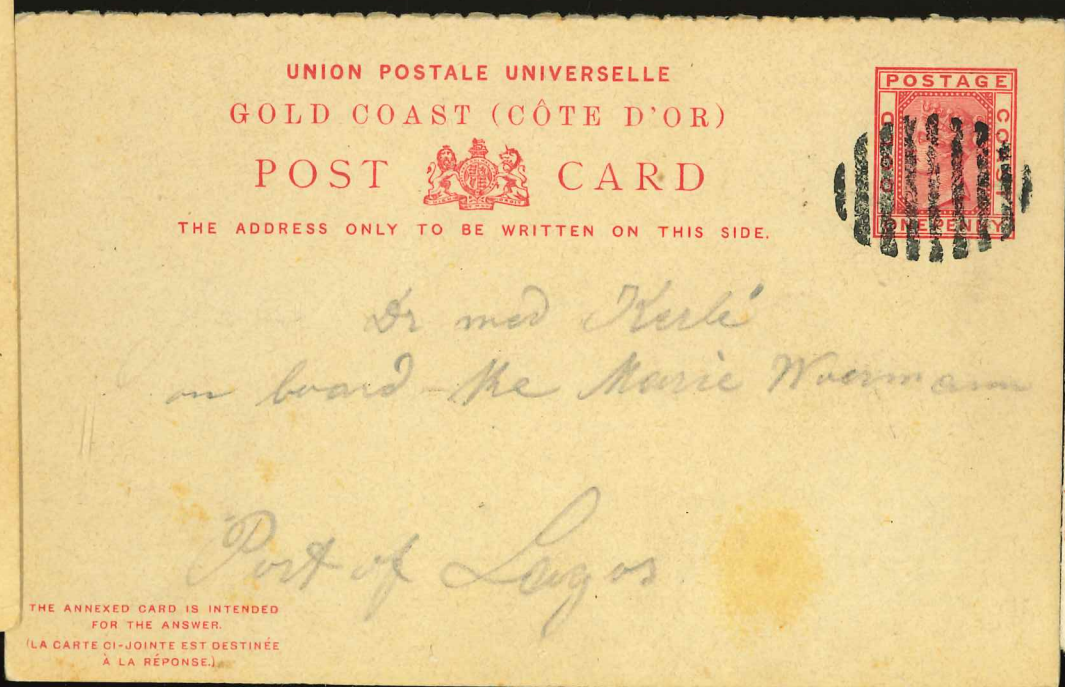 UNION POSTALE UNIVERSELLE
GOLD COAST (CÔTE D'OR)
POST CARD
THE ADDRESS ONLY TO BE WRITTEN ON THIS SIDE.
POSTAGE
GOLD COAST
ONE PENNY
Dr med Kerlé
on board the Marie Woermann
Port of Lagos
THE ANNEXED CARD IS INTENDED
FOR THE ANSWER.
(LA CARTE CI-JOINTE EST DESTINÉE
À LA RÉPONSE.)